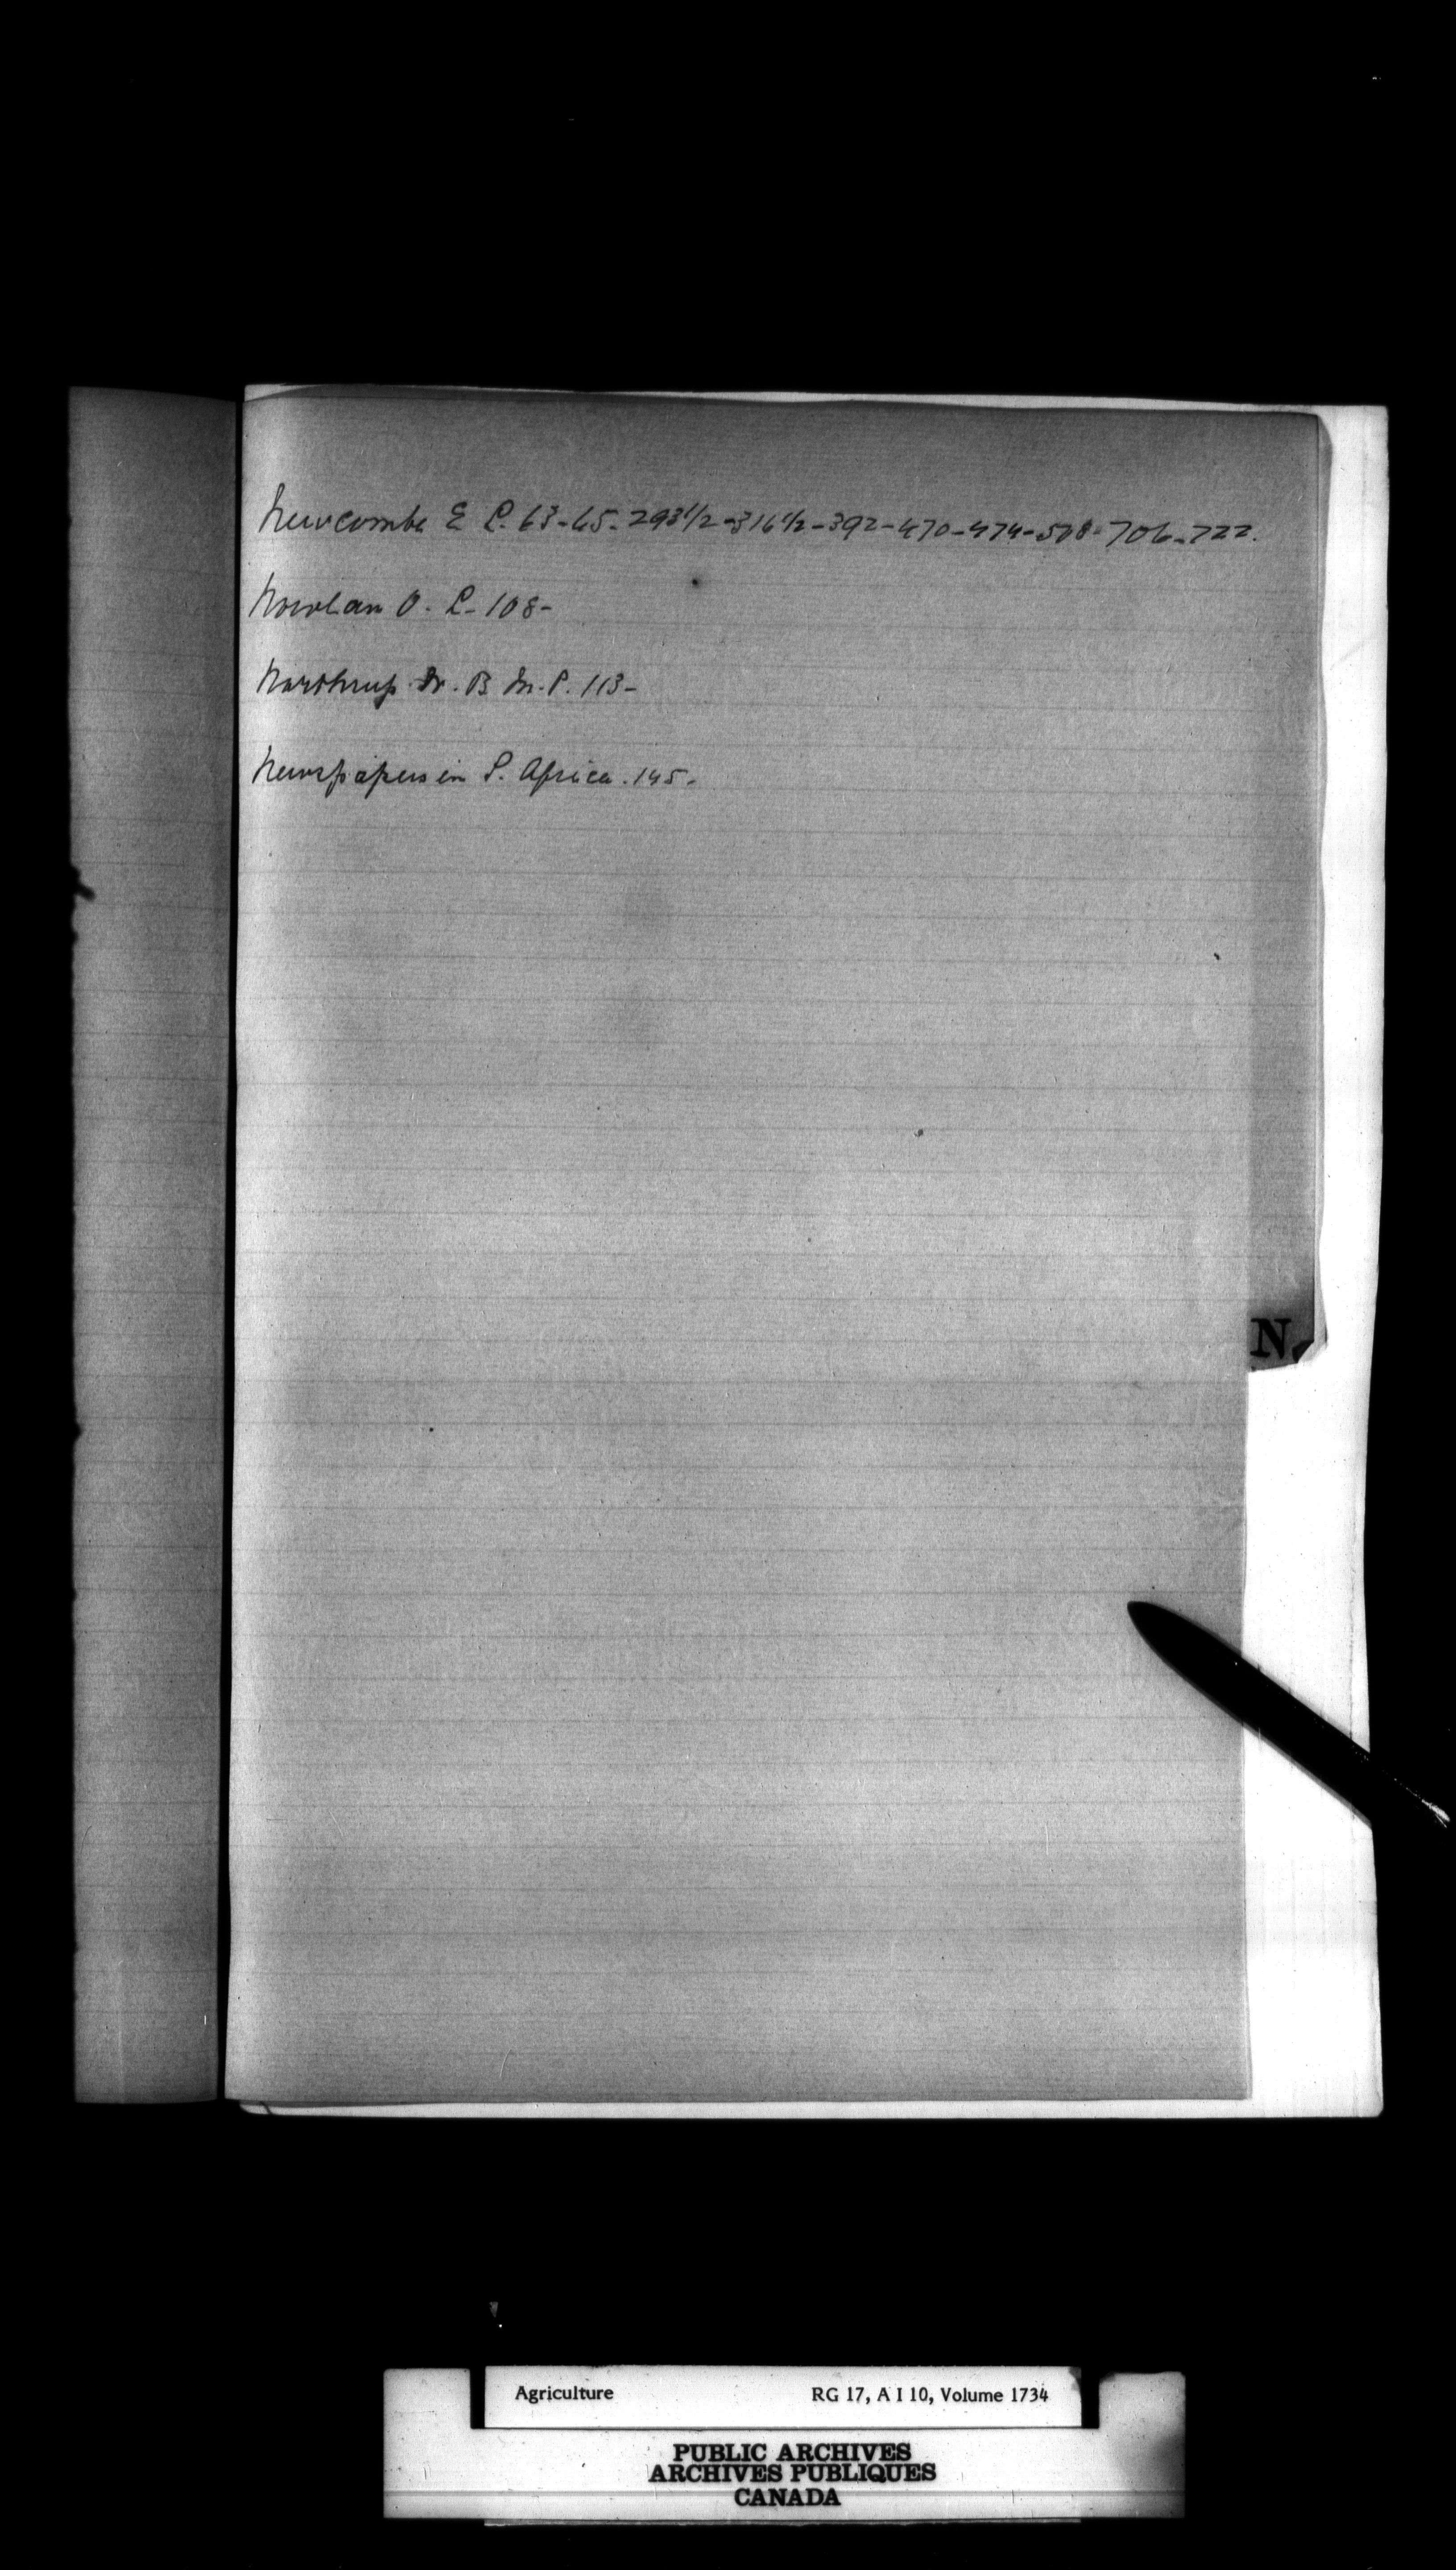 Newcombe E L. 63-65-293 1/2-316 1/2-392-470-474-508-706-722.
Nowlan O. L-108-
Northrup Dr. B M. P. 113-
Newspapers in S. Africa. 145-
N
Agriculture RG 17, A I 10, Volume 1734
PUBLIC ARCHIVES
ARCHIVES PUBLIQUES
CANADA